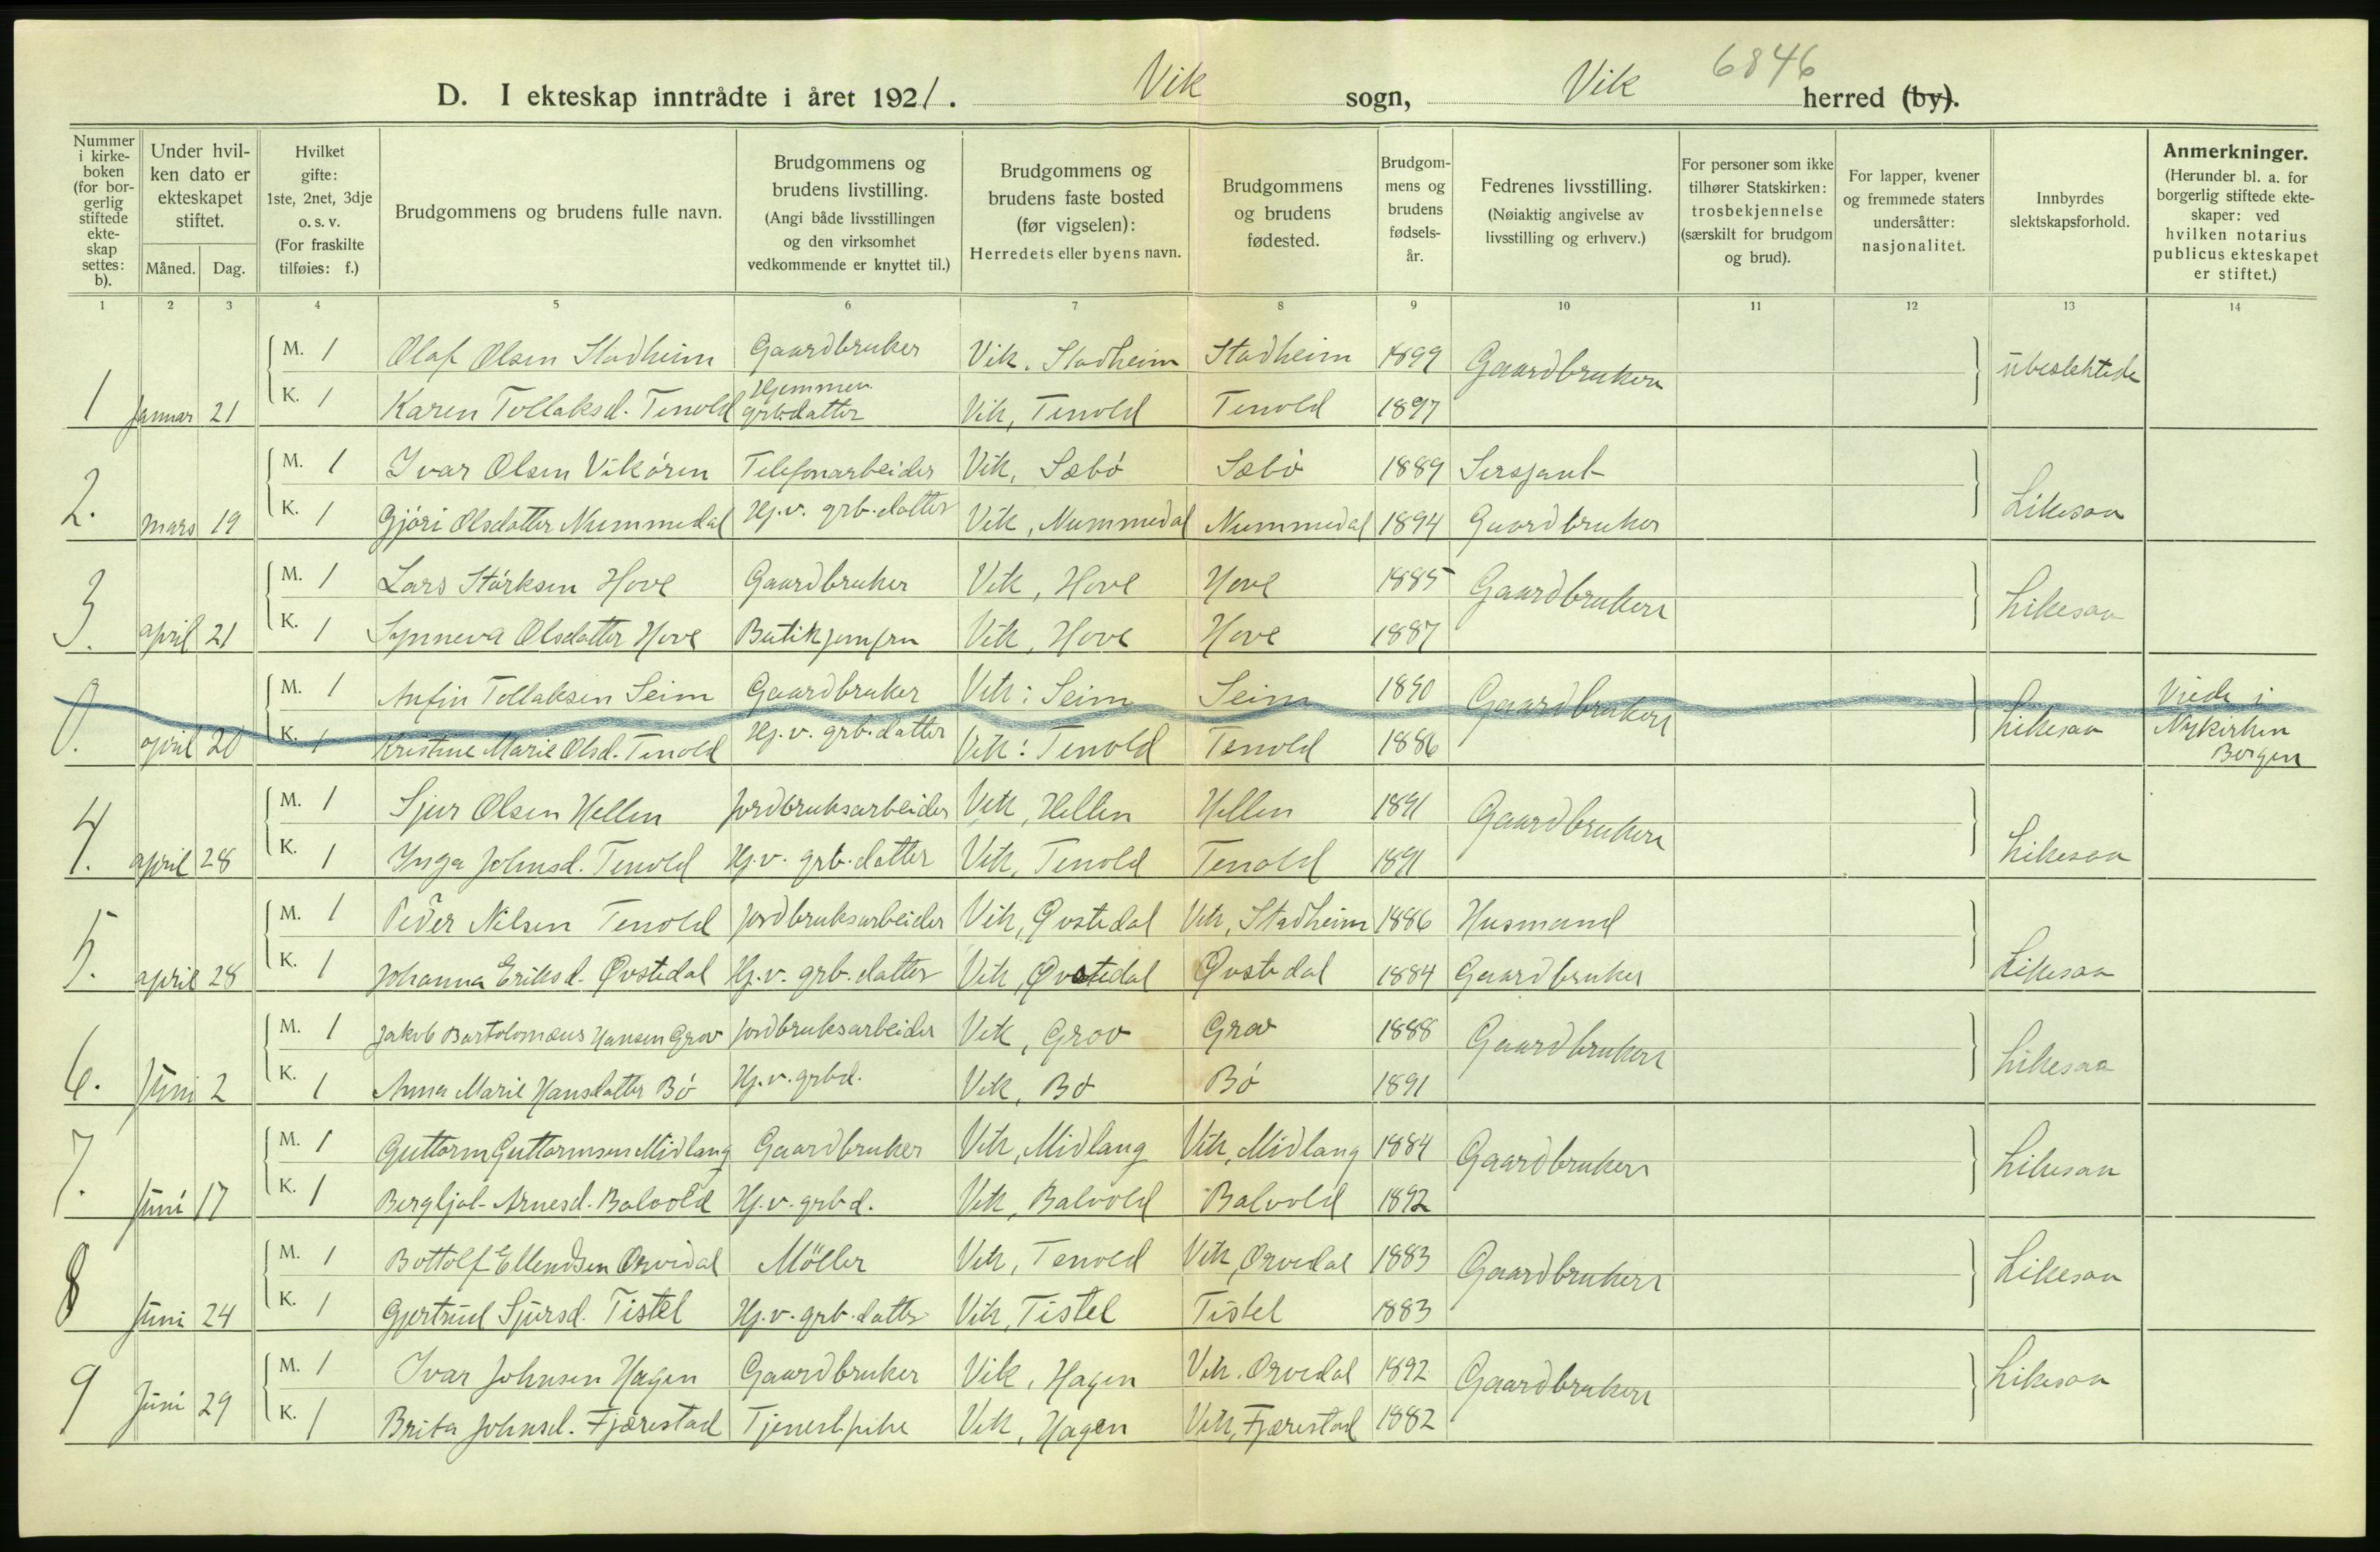 6846
D. I ekteskap inntrådte i året 1921. Vik sogn, Vik herred (by).
Nummer i kirke- boken (for bor- gerlig stiftede ekte- skap settes: b).
Under hvil- ken dato er ekteskapet stiftet.
Måned. Dag.
Hvilket gifte: 1ste, 2net, 3dje o. s. v. (For fraskilte tilføies: f.)
Brudgommens og brudens fulle navn.
Brudgommens og brudens livstilling. (Angi både livsstillingen og den virksomhet vedkommende er knyttet til.)
Brudgommens og brudens faste bosted (før vigselen): Herredets eller byens navn.
Brudgommens og brudens fødested.
Brudgom- mens og brudens fødsels- år.
Fedrenes livsstilling. (Nøiaktig angivelse av livsstilling og erhverv.)
For personer som ikke tilhører Statskirken: trosbekjennelse (særskilt for brudgom og brud).
For lapper, kvener og fremmede staters undersåtter: nasjonalitet.
Innbyrdes slektskapsforhold.
Anmerkninger. (Herunder bl. a. for borgerlig stiftede ekte- skaper: ved hvilken notarius publicus ekteskapet er stiftet.)
1 2 3 4 5 6 7 8 9 10 11 12 13 14
M. 1 Olaf Olsen Stadheim Gaardbruker Vik. Stadheim Stadheim 1899 Gaardbrukere ubeslektede
1 Januar 21 K. 1 Karen Tollaksd. Tenold Hjemmev. grb.datter Vik, Tenold Tenold 1897
M. 1 Ivar Olsen Vikøren Telefonarbeider Vik, Sæbø Sæbø 1889 Sersjant
2. mars 19 K. 1 Gjøri Olsdatter Nummedal Hj.v. grb.datter Vik, Nummedal Nummedal 1894 Gaardbruker Likesaa
M. 1 Lars Størksen Hove Gaardbruker Vik, Hove Hove 1885 Gaardbrukere
3. april 21 K. 1 Synneva Olsdatter Hove Butikjomfru Vik, Hove Hove 1887 Likesaa
M. 1 Anfin Tollaksen Seim Gaardbruker Vik: Seim Seim 1890 Gaardbrukere Viede i
0. april 20 K. 1 Kristine Marie Olsd. Tenold Hj.v. grb.datter Vik: Tenold Tenold 1886 Likesaa Nykirken Bergen
M. 1 Sjur Olsen Hellen Jordbruksarbeider Vik, Hellen Hellen 1891 Gaardbrukere
4. april 28 K. 1 Inga Johnsd. Tenold Hj.v. grb.datter Vik, Tenold Tenold 1891 Likesaa
M. 1 Peder Nilsen Tenold Jordbruksarbeider Vik, Øvstedal Vik, Stadheim 1886 Husmand
5. april 28 K. 1 Johanna Eriksd. Øvstedal Hj.v. grb.datter Vik, Øvstedal Øvstedal 1884 Gaardbruker Likesaa
M. 1 Jakob Bartolomæus Hansen Grov Jordbruksarbeider Vik, Grov Grov 1888 Gaardbrukere
6. Juni 2 K. 1 Anna Marie Hansdatter Bø Hj.v. grbd. Vik, Bø Bø 1891 Likesaa
M. 1 Guttorm Guttormsen Midlang Gaardbruker Vik, Midlang Vik, Midlang 1884 Gaardbrukere Likesaa
7. Juni 17 K. 1 Bergljot Arnesd. Bolvold Hj.v. grbd. Vik, Balvold Balvold 1892
M. 1 Bottolf Ellendsen Orvidal Möller Vik, Tenold Vik, Orvedal 1883 Gaardbrukere Likesaa
8 Juni 24 K. 1 Gjertrud Sjursd. Tistel Hj.v. grb.datter Vik, Tistel Tistel 1883
M. 1 Ivar Johnsen Hagen Gaardbruker Vik, Hagen Vik. Orvedal 1892 Gaardbrukere Likesaa
9 Juni 29 K. 1 Brita Johnsd. Fjærestad Tjenestpike Vik, Hagen Vik, Fjærestad 1882